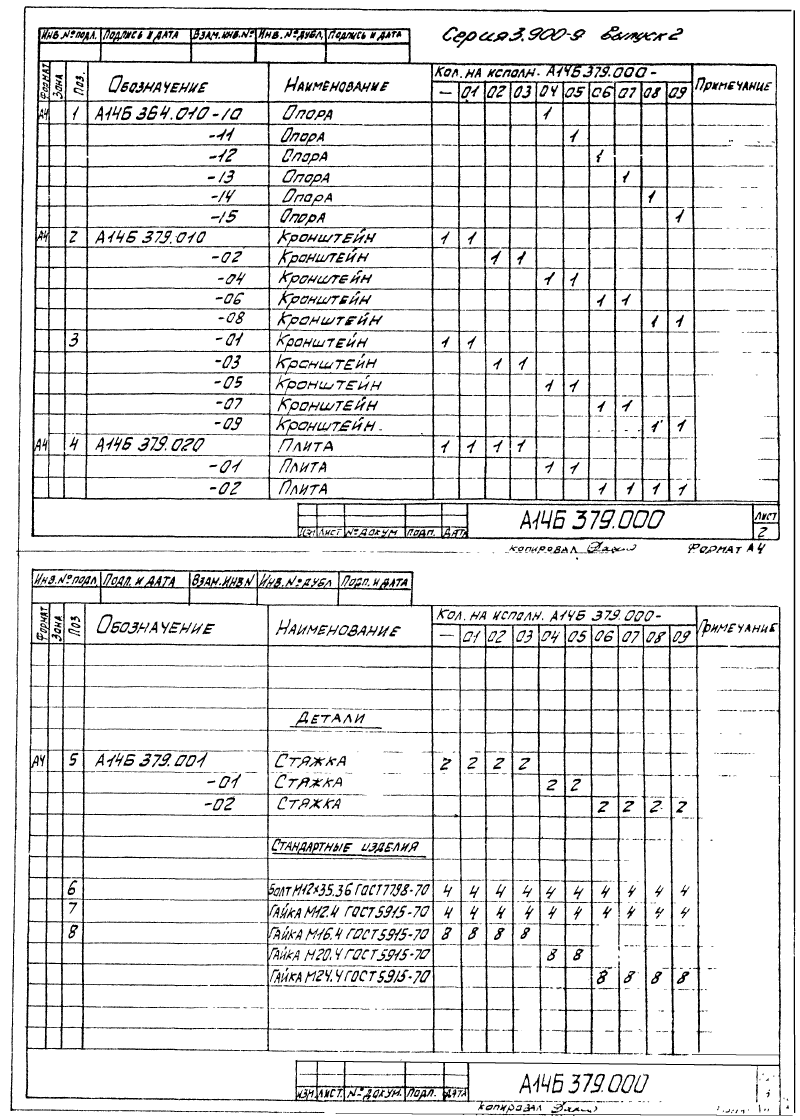 Инв.№подл. Подпись и дата Взам.инв.№ Инв.№дубл. Подпись и дата
Серия 3.900-9 Выпуск 2
Формат Зона Поз. Обозначение Наименование Кол. на исполн. А14Б379.000- Примечание
— 01 02 03 04 05 06 07 08 09
А4 1 А14Б 364.010-10 Опора 1
-11 Опора 1
-12 Опора 1
-13 Опора 1
-14 Опора 1
-15 Опора 1
А4 2 А14Б 379.010 Кронштейн 1 1
-02 Кронштейн 1 1
-04 Кронштейн 1 1
-06 Кронштейн 1 1
-08 Кронштейн 1 1
3 -01 Кронштейн 1 1
-03 Кронштейн 1 1
-05 Кронштейн 1 1
-07 Кронштейн 1 1
-09 Кронштейн. 1 1
А4 4 А14Б 379.020 Плита 1 1 1 1
-01 Плита 1 1
-02 Плита 1 1 1 1
А14Б 379.000
Лист
2
Изм Лист №докум Подп. Дата
Копировал Формат А4
Инв.№подл Подп. и дата Взам.инв.№ Инв.№дубл Подп. и дата
Формат Зона Поз Обозначение Наименование Кол. на исполн. А14Б 379.000- Примечание
— 01 02 03 04 05 06 07 08 09
Детали
А4 5 А14Б 379.001 Стяжка 2 2 2 2
-01 Стяжка 2 2
-02 Стяжка 2 2 2 2
Стандартные изделия
6 Болт М12×35.36 ГОСТ7798-70 4 4 4 4 4 4 4 4 4 4
7 Гайка М12.4 ГОСТ5915-70 4 4 4 4 4 4 4 4 4 4
8 Гайка М16.4 ГОСТ5915-70 8 8 8 8
Гайка М20.4 ГОСТ5915-70 8 8
Гайка М24.4 ГОСТ5915-70 8 8 8 8
А14Б 379.000
Изм. Лист №докум. Подп. Дата
Копировал